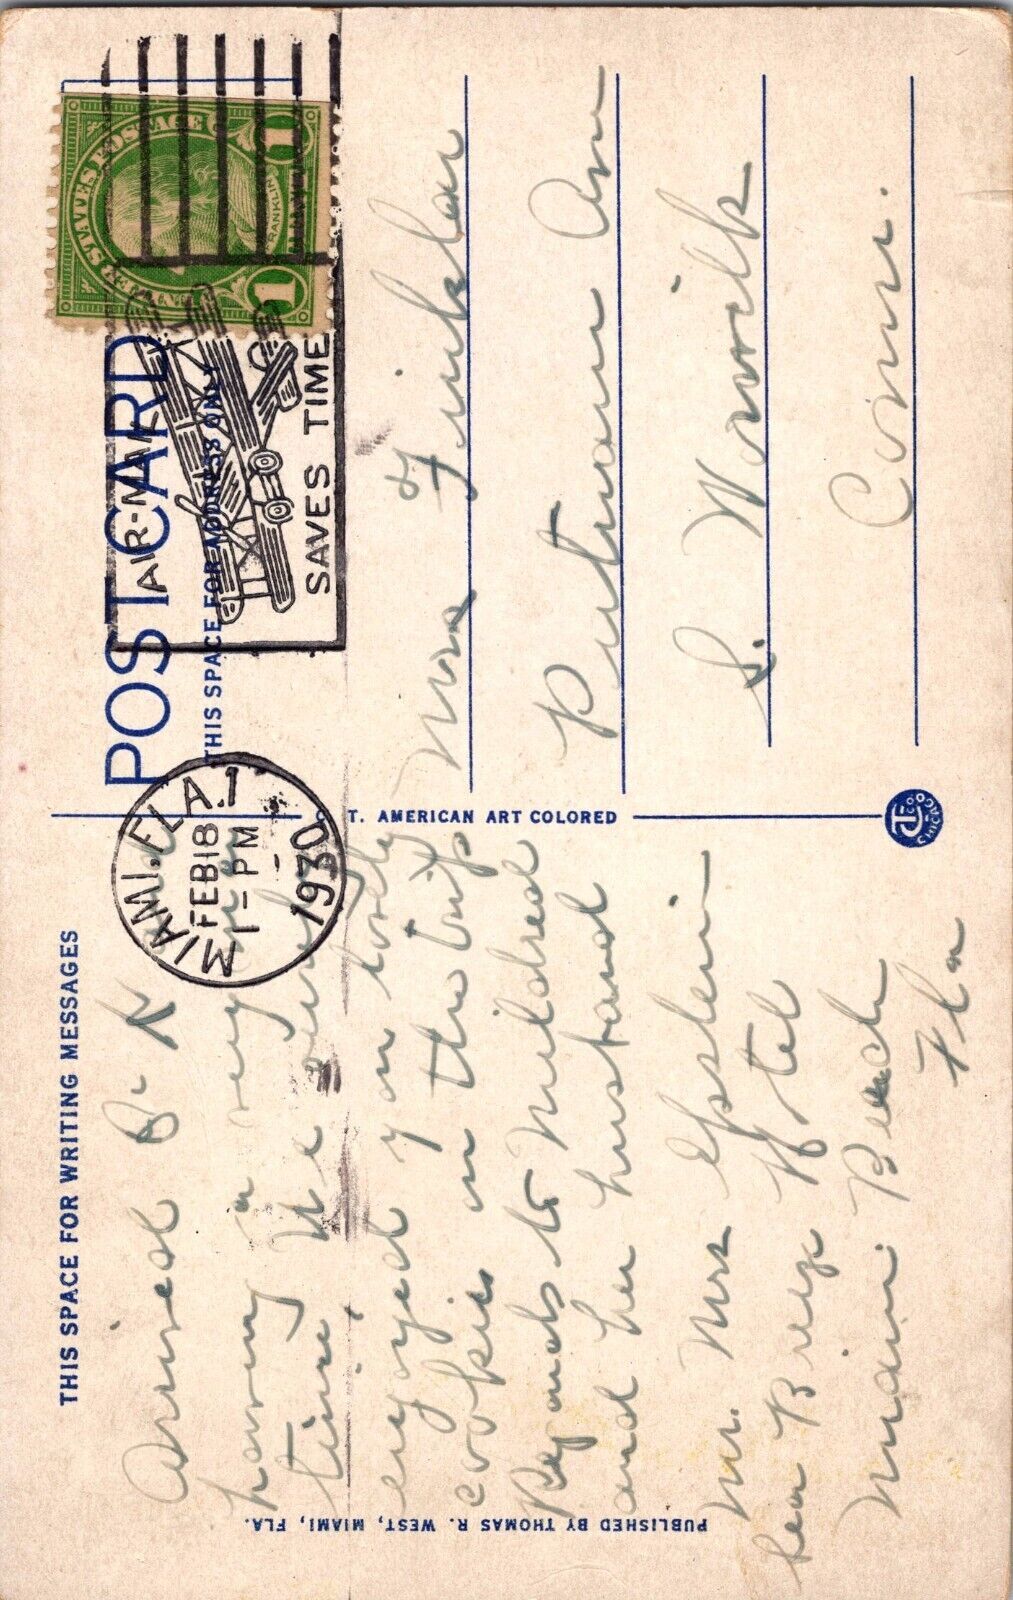 THIS SPACE FOR WRITING MESSAGES
Arrived O. K. and
having a very fine
time, We surely
enjoyed your lovely
cookies on the trip
Regards to Mildred
and her husband
Mr. Mrs Epstein
Sea Breeze Hotel
Miami Beach
Fla
PUBLISHED BY THOMAS R. WEST, MIAMI, FLA.
C. T. AMERICAN ART COLORED
CTCO CHICAGO
POST CARD
THIS SPACE FOR ADDRESS ONLY
MIAMI, FLA. 1
FEB 18
1 - PM
1930
AIR-MAIL
SAVES TIME
UNITED STATES POSTAGE
FRANKLIN
1 1
Mrs
Putnam Ave
S. Norwalk
Conn.